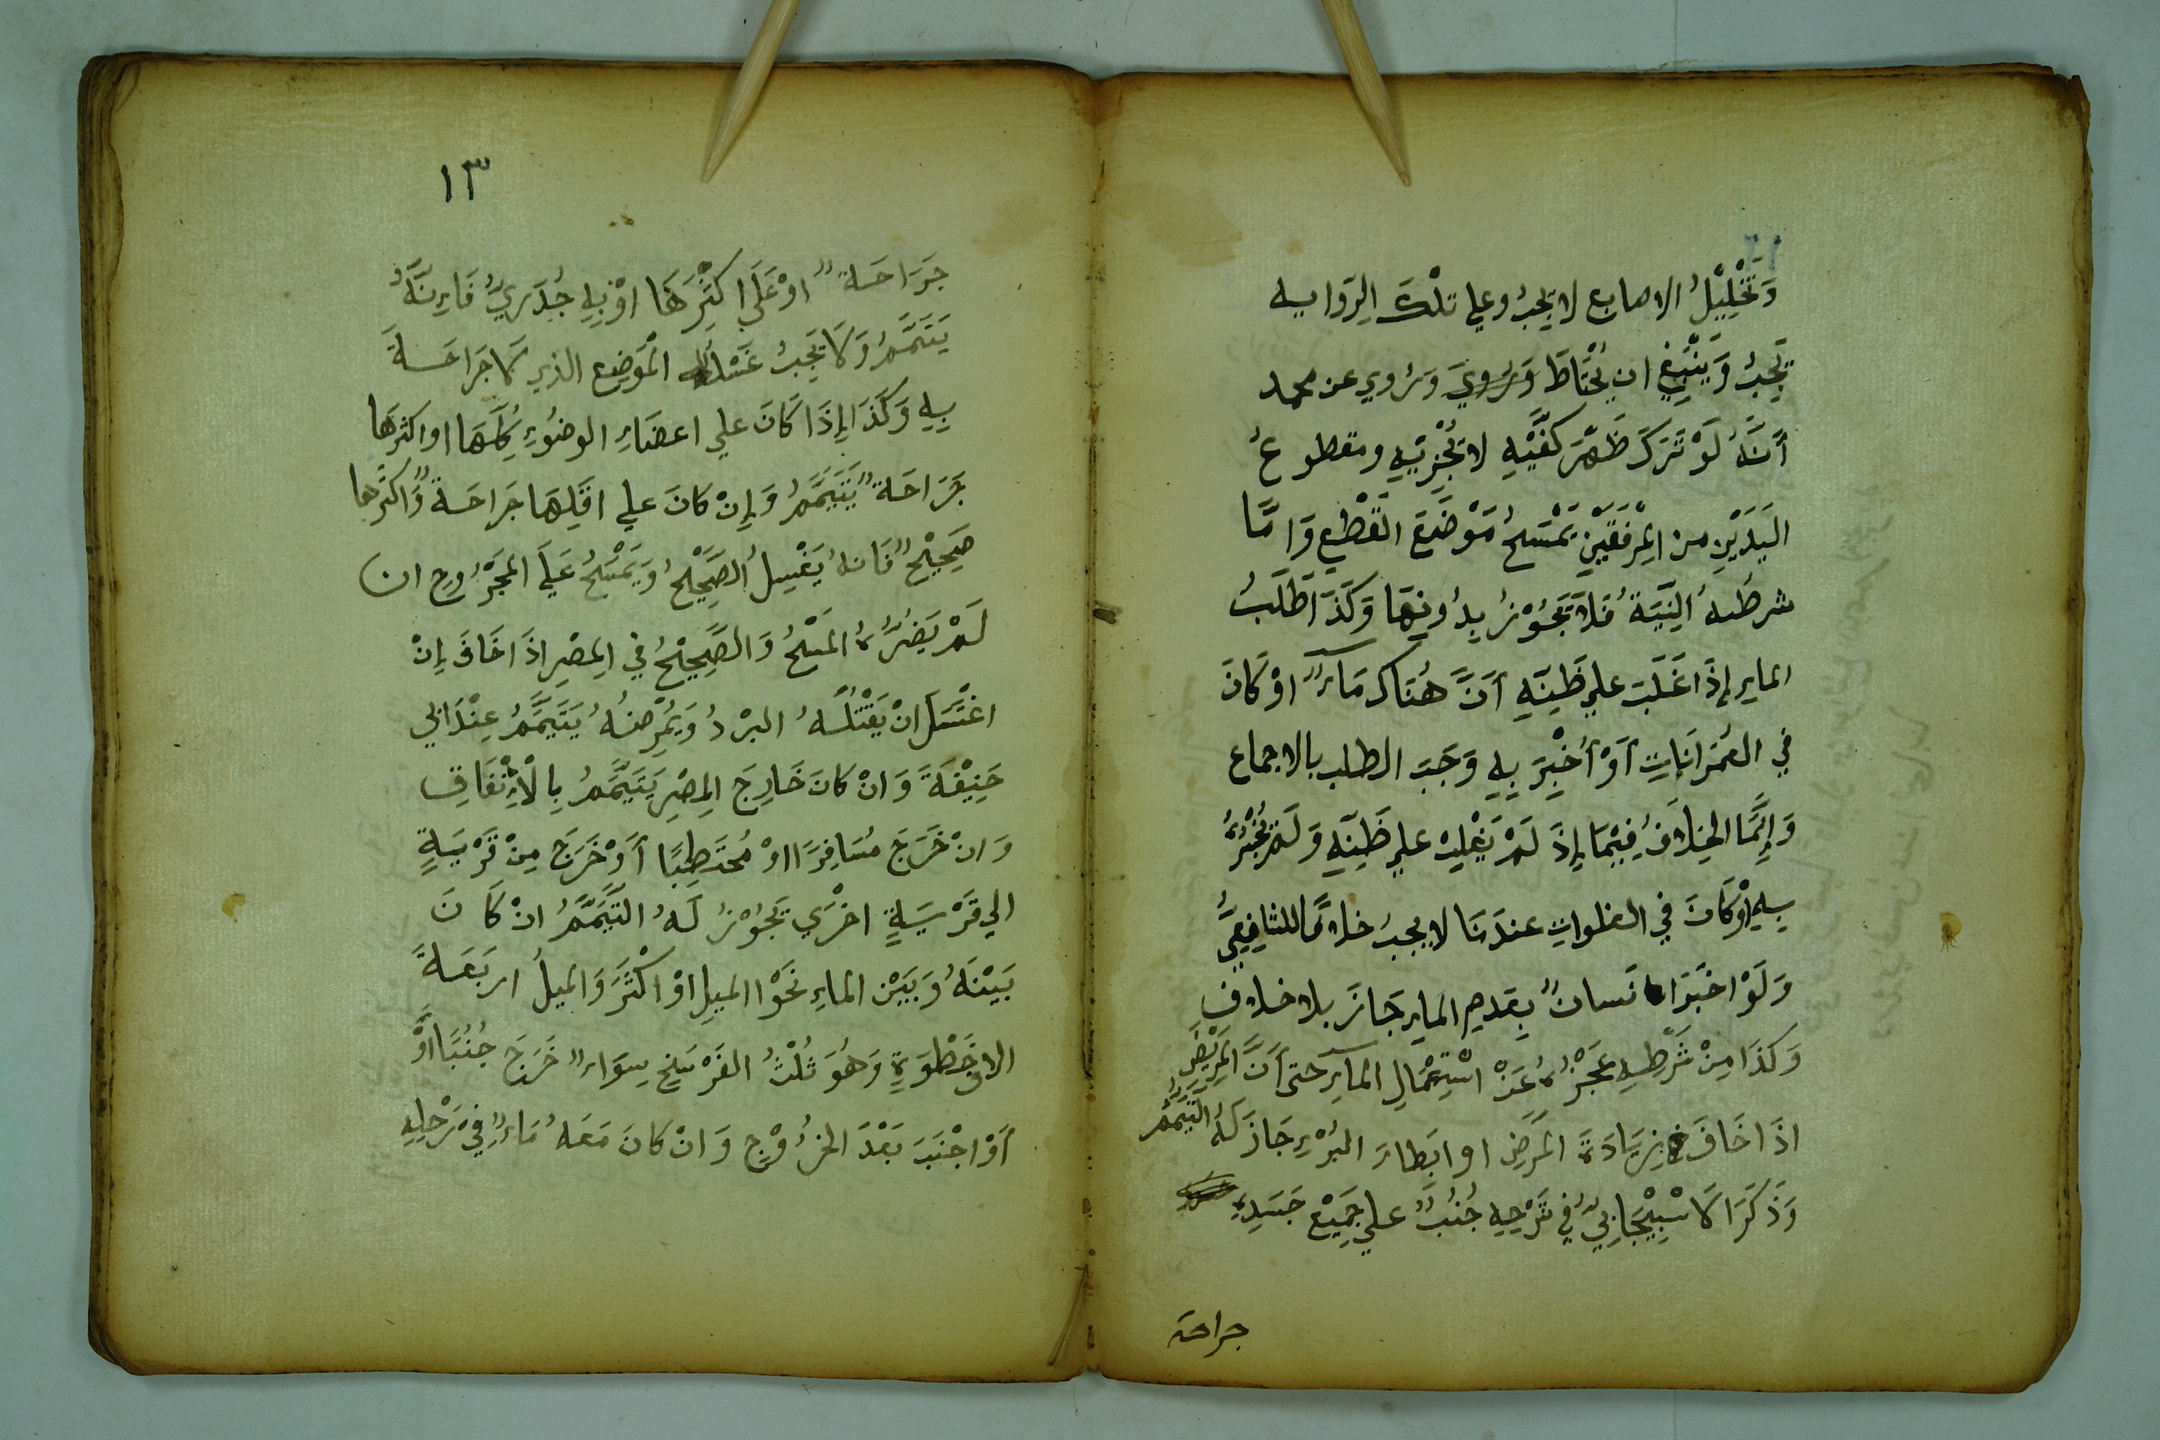 وَتَخْلِيْلُ الاصابع لا يجبُ وعلي تلْكَ الِرَوايه
يَجِبُ وَيَنْبَغِي ان يُحْتَاطَ وَرُوِيَ وَرُوي عن محمد
أَنَّهُ لَوْ تَرَكَ ظَهْرَ كَفَّيْهِ لا تُجْزِيْهِ ومقطوعُ
اليَدَيْنِ من المِرْفَقَيْنِ يَمْسَحُ مَوْضَعَ القَطْعِ وَامَّا
شرطُه الِنيَةُ فَلاَ يَجُوْزُ بِدُونِهَا وَكَذَا طَلَبُ
الماءِ إِذَا غَلَبَ علي ظَنِّهِ أَنَّ هُنَاكَ مَآءٌ اوْ كَانَ
في العُمْرَانَاتِ أَوْ أُخْبِرَ بِهِ وَجَبَ الطلب بالاجماع
وَإِنَّمَا الخِلاَفُ فِيْمَا إِذَ لَمْ يَغْلِبْ علي ظَنِّهِ وَلَمْ يُخْبِرْهُ
بِهِ اوْ كَانَ في الفلواتِ عندَنَا لا يجبُ خلافًا للشافِعِيِّ
وَلَوْ اخبَرَ انسانٌ بِعَدمِ الماءِ جَازَ بلا خلاف
وَكَذَا مِنْ شَرْطِهِ عَجْزُهُ عَنْ اسْتِعْمَالِ المآءِ حتى أَنَّ المَرِيْضَ
اذَا خَافَ زِيَادَةَ المَرَضِ او ابَطاءَ البُرْءِ جَازَ لَهُ التَّيَمُّمُ
وَذَكَرَ الاسْبِيْجَابِيُّ في شَرْحِهِ جُنُبٌ علي جَمِيْعِ جَسَدِهِ
جراحة
١٣
جَرَاحَةٌ اوْ عَلَي اكثَرِهَا اوْ بِهِ جُدَرِيٌّ فَاءِنَّهُ
يَتَيَمَّمُ وَلاَ يَجِبُ غَسْلُ الْمَوَضِعِ الذي لاَ جَرَاحَةَ
بِهِ وَكَذَا إِذَا كَانَ علي اعضَاءِ الوضُوْءِ كُلِّهَا او اكثرِهَا
جَرَاحَةٌ يَتَيَمَّمُ وَإِنْ كانَ علي اقَلِهَا جَراحَةٌ وَاكثَرُها
صَحِيْحٌ فَانهُ يَغْسِلُ الصَّحِيْحَ وَيَمْسَحُ عَلَي المَجْرُوحِ ان
لَمْ يَضُرَّهُ المَسْحُ وَالصَّحِيْحُ في المِصْرِ اذَا خَافَ إِنْ
اغتَسَلَ انْ يَقْتُلَهُ البرْدُ وَيُمْرِضهُ يَتَيَمَّمُ عِنْدَ ابي
حَنِيْفَةَ وَانْ كانَ خَارِجَ المِصْرِ يَتَيَمَّمُ بِالْاِتْفَاقِ
وَانْ خَرَجَ مُسَافِرًا اوْ مُحتَطِبًا أَوْ خَرَجَ مِنْ قَرْيَةٍ
الي قَرْيَةٍ اخرَي يَجُوْزُ لَهُ التَّيَمَّمُ انْ كَانَ
بَيْنَهُ وَبَيْنَ الماءِ نَحْوْ الميلِ اوْ اكْثَرَ وَالميلُ اربَعَةُ
الاف خَطْوَةٍ وَهُوَ ثُلْثُ الفَرْسَخِ سِوَاءٌ خَرَجَ جُنُبًا أَوْ
أَوْ اجْنَبَ بَعْدَ الخرُوْجِ وَانْ كانَ مَعَهُ مَاءٌ فِيْ رَحْلِهِ